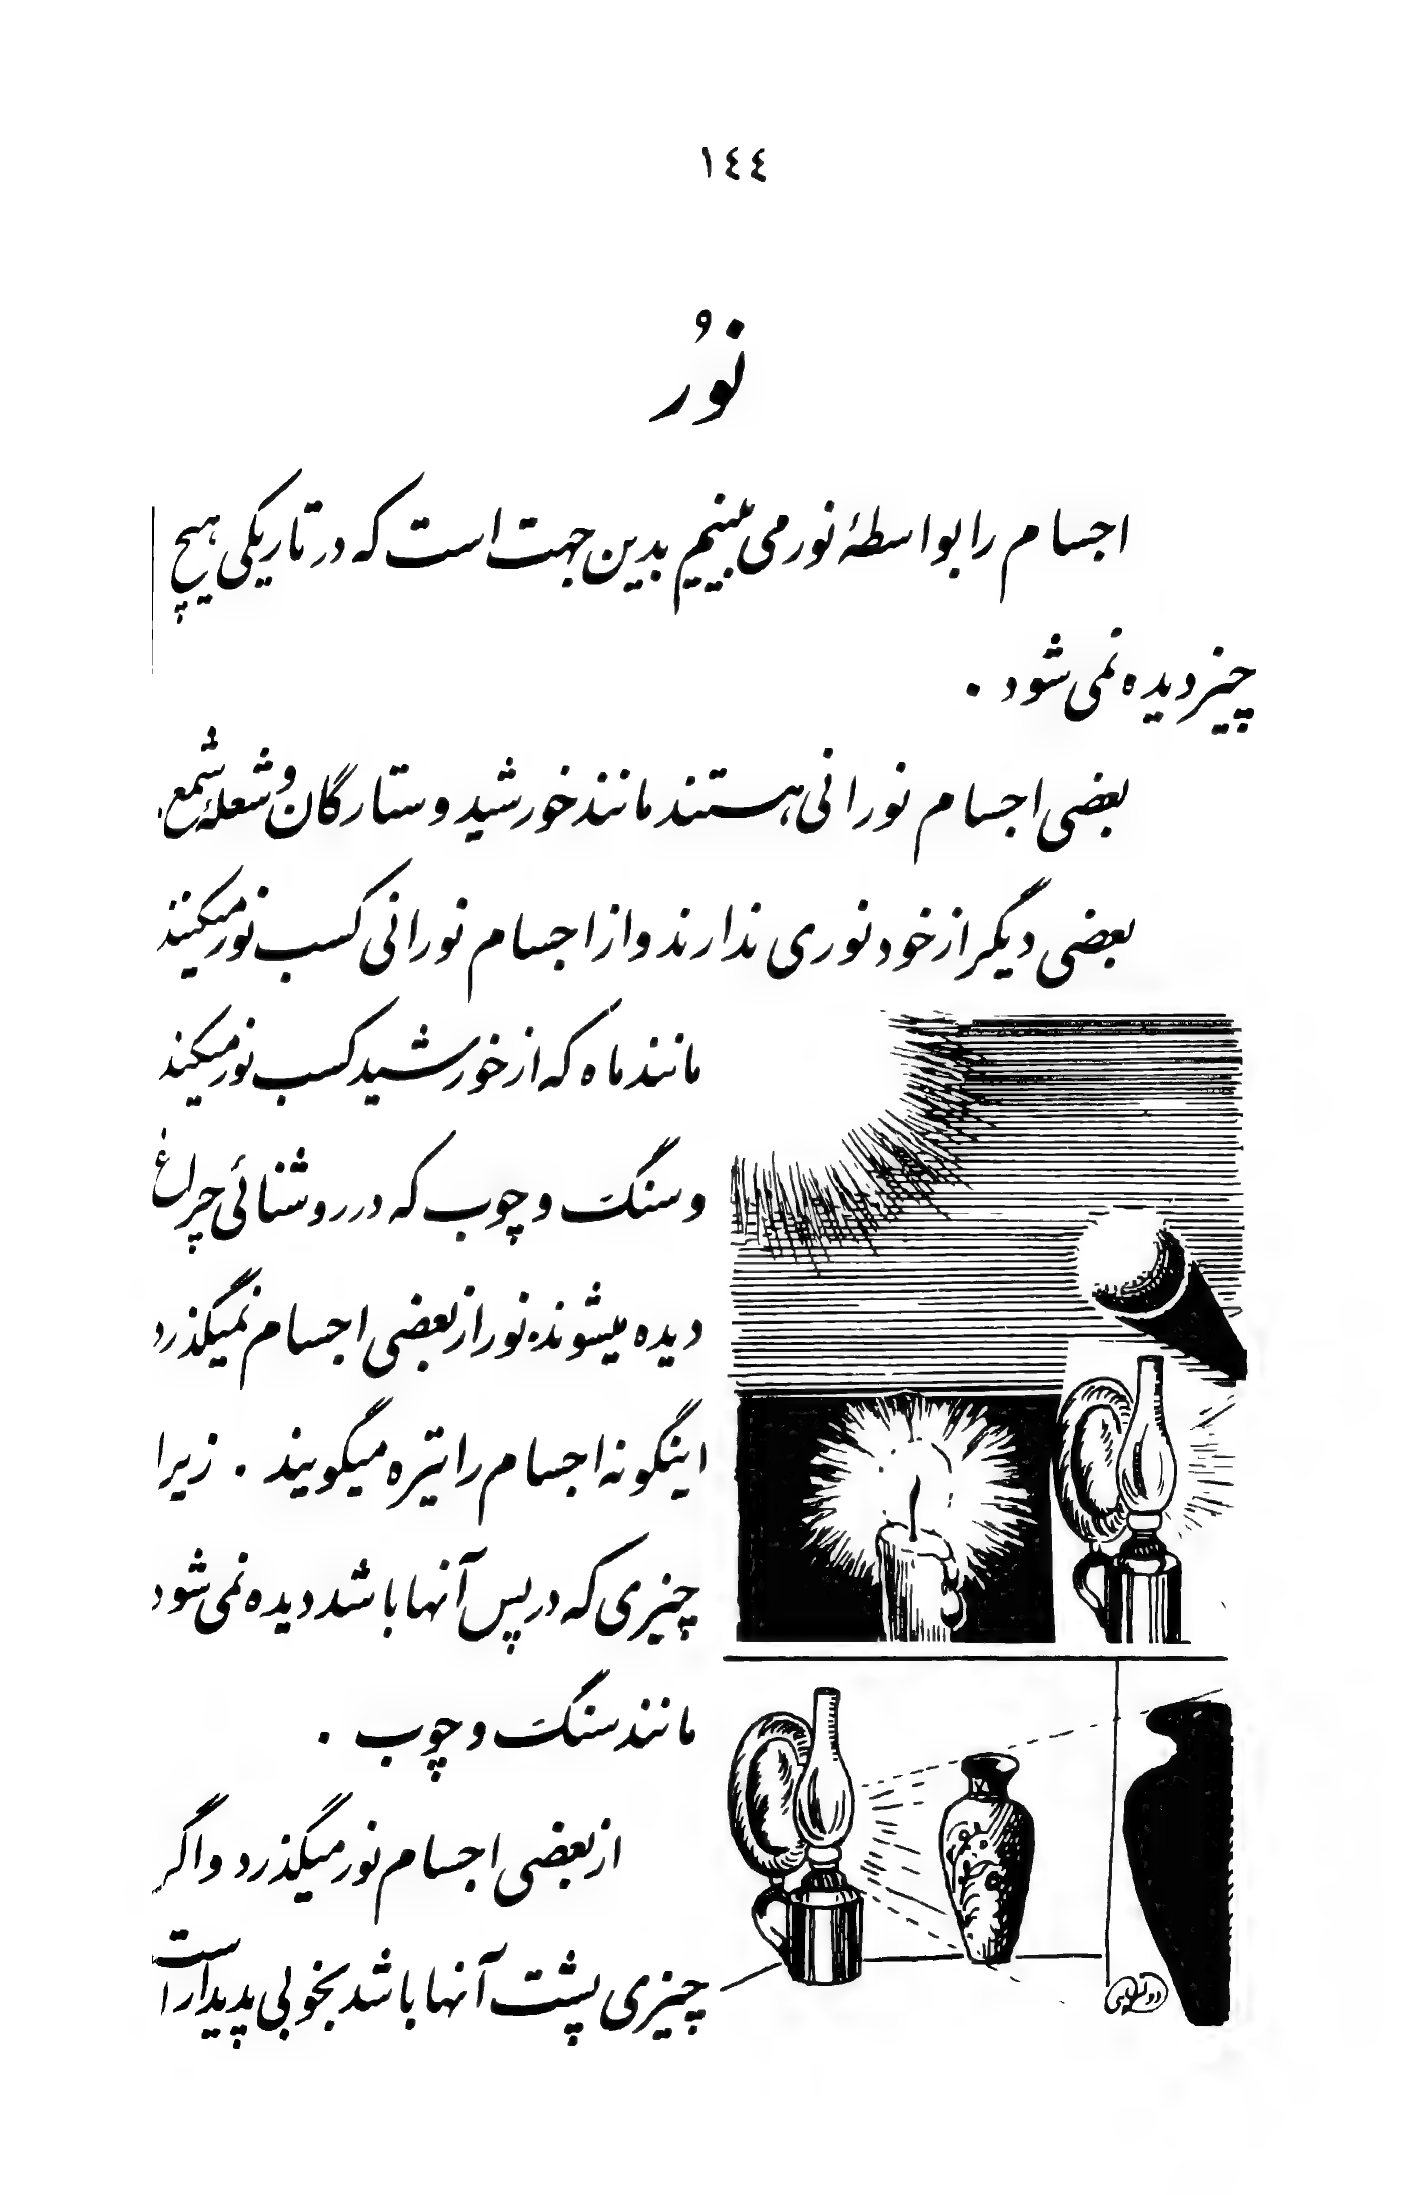 ١٤٤
نوُر
اجسام را بواسطهٔ نور می بینیم بدین جهت است که در تاریکی هیچ
چیز دیده نمی شود .
بعضی اجسام نورانی هستند مانند خورشید و ستارگان و شعلهٔ شمع .
بعضی دیگر از خود نوری ندارند و از اجسام نورانی کسب نور میکنند
مانند ماه که از خورشید کسب نور میکند
و سنگ و چوب که در روشنائی چراغ
دیده میشوند . نور از بعضی اجسام نمیگذرد
اینگونه اجسام را تیره میگویند . زیرا
چیزی که در پس آنها باشد دیده نمی شود
مانند سنگ و چوب .
از بعضی اجسام نور میگذرد و اگر
چیزی پشت آنها باشد بخوبی پدیدار است